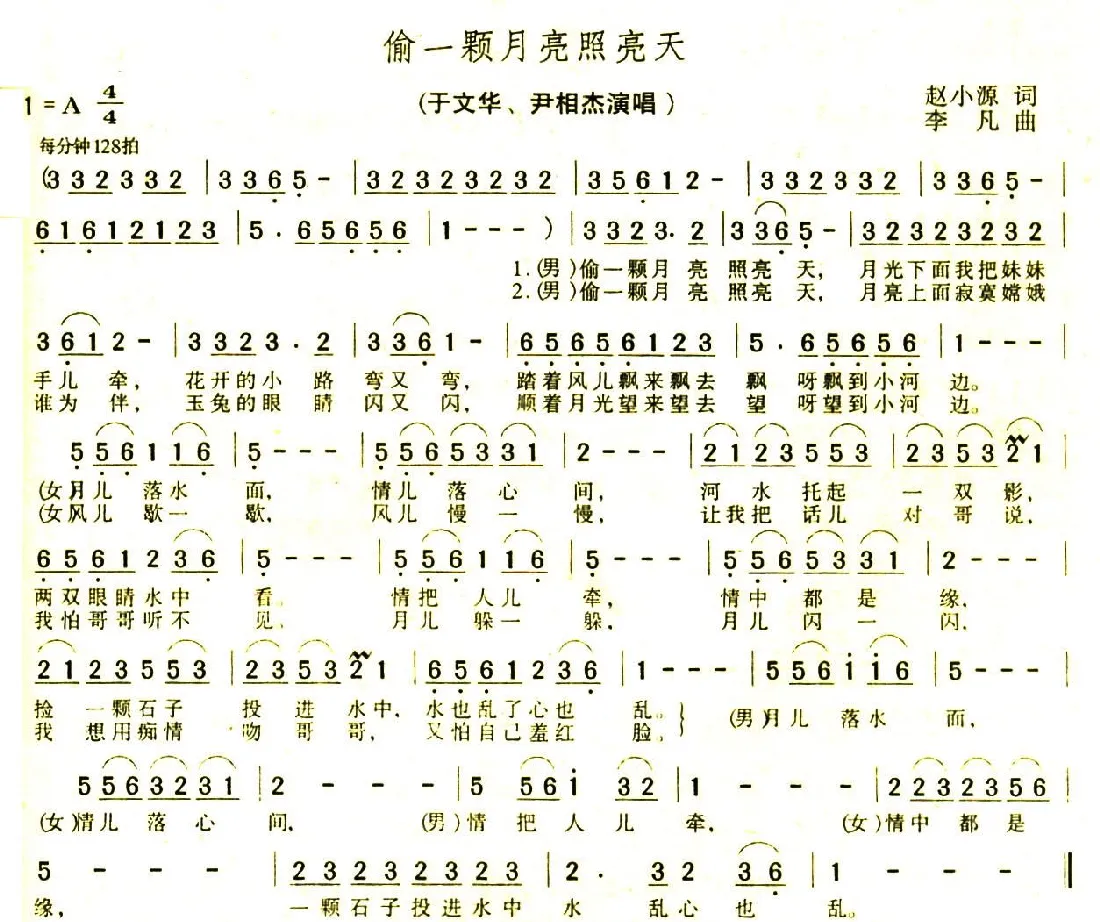 偷一颗月亮照亮天
1=A 4/4
(于文华、尹相杰演唱)
赵小源 词
李 凡 曲
每分钟128拍
(3 3 2 3 3 3 2 | 3 3 6 5 - | 3 2 3 2 3 2 3 2 | 3 5 6 1 2 - | 3 3 2 3 3 3 2 | 3 3 6 5 - |
6 1 6 1 2 1 2 3 | 5 . 6 5 6 5 6 | 1 - - - ) | 3 3 2 3 3. 2 | 3 3 6 5 - | 3 2 3 2 3 2 3 2 |
1.(男)偷一颗月 亮 照亮 天, 月光下面我把妹妹
2.(男)偷一颗月 亮 照亮 天, 月亮上面寂寞嫦娥
3 6 1 2 - | 3 3 2 3 3 . 2 | 3 3 6 1 - | 6 5 6 5 6 1 2 3 | 5 . 6 5 6 5 6 | 1 - - - |
手儿 牵, 花开的小 路 弯又 弯, 踏着风儿飘来飘去 飘 呀飘到小河 边。
谁为 伴, 玉兔的眼 睛 闪又 闪, 顺着月光望来望去 望 呀望到小河 边。
5 5 6 1 1 6 | 5 - - - | 5 5 6 5 3 3 1 | 2 - - - | 2 1 2 3 5 5 3 | 2 3 5 3 2 1 |
(女)月儿 落水 面, 情儿 落 心 间, 河 水 托起 一 双 影,
(女)风儿 歇一 歇, 风儿 慢 一 慢, 让我把 话儿 对 哥 说,
6 5 6 1 2 3 6 | 5 - - - | 5 5 6 1 1 6 | 5 - - - | 5 5 6 5 3 3 1 | 2 - - - |
两双眼睛水中 看。 情把 人儿 牵, 情中 都 是 缘,
我怕哥哥听不 见, 月儿 躲一 躲, 月儿 闪 一 闪,
2 1 2 3 5 5 3 | 2 3 5 3 2 1 | 6 5 6 1 2 3 6 | 1 - - - | 5 5 6 1 1 6 | 5 - - - |
捡 一颗石子 投 进 水中, 水也乱了心也 乱。 (男)月儿 落水 面,
我 想用痴情 吻 哥 哥, 又怕自己羞红 脸,
5 5 6 3 2 3 1 | 2 - - - | 5 5 6 1 3 2 | 1 - - - | 2 2 3 2 3 5 6 |
(女)情儿 落 心 间, (男)情 把 人 儿 牵, (女)情中 都 是
5 - - - | 2 3 2 3 2 3 2 3 | 2 . 3 2 3 6 | 1 - - - ‖
缘, 一颗石子投进水中 水 乱心 也 乱。